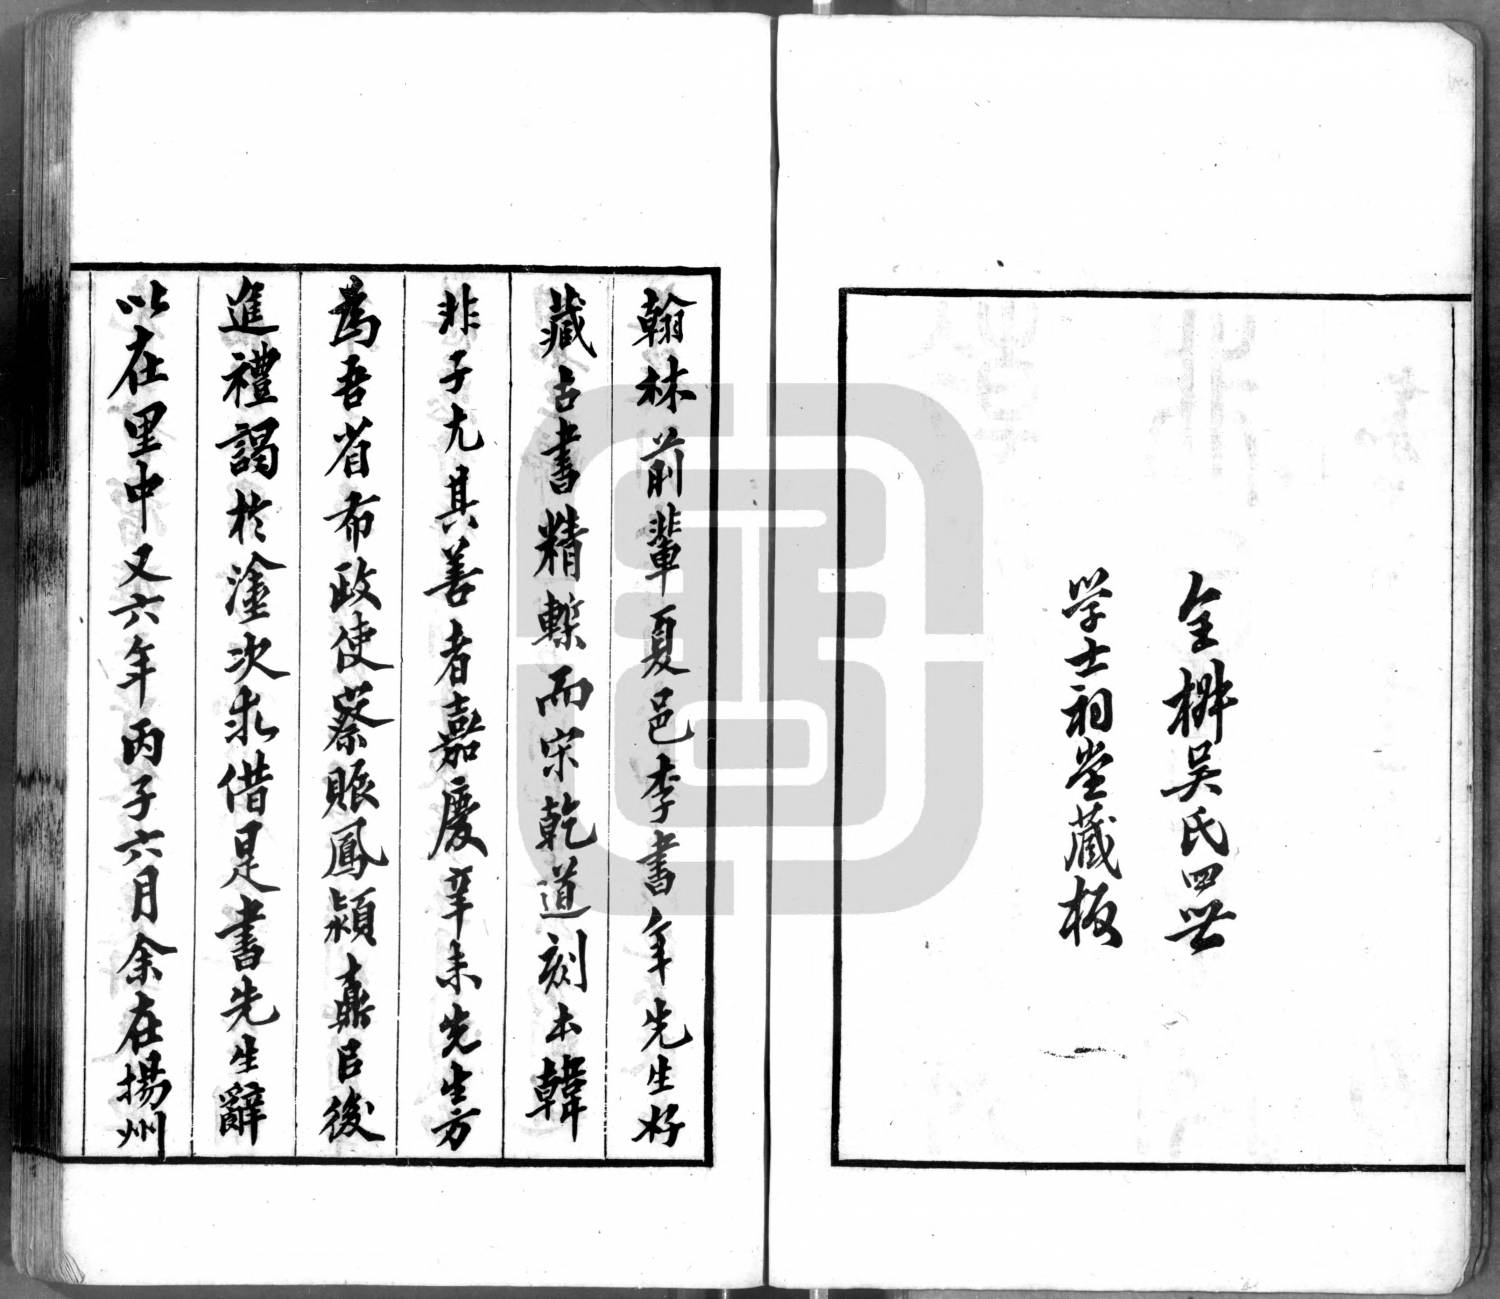 全椒吳氏四世
学士祠堂藏板
翰林前輩夏邑李書年先生好
藏古書精槧而宋乾道刻本韓
非子尤其善者嘉慶辛未先生方
為吾省布政使蔡賑鳳潁鼒臣後
進禮謁於塗次求借是書先生辭
以在里中又六年丙子六月余在揚州